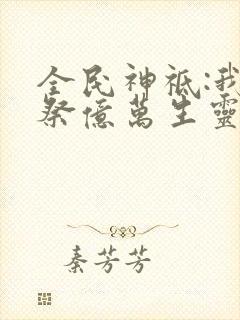 全民神祇:我
祭億萬生靈
秦芳芳